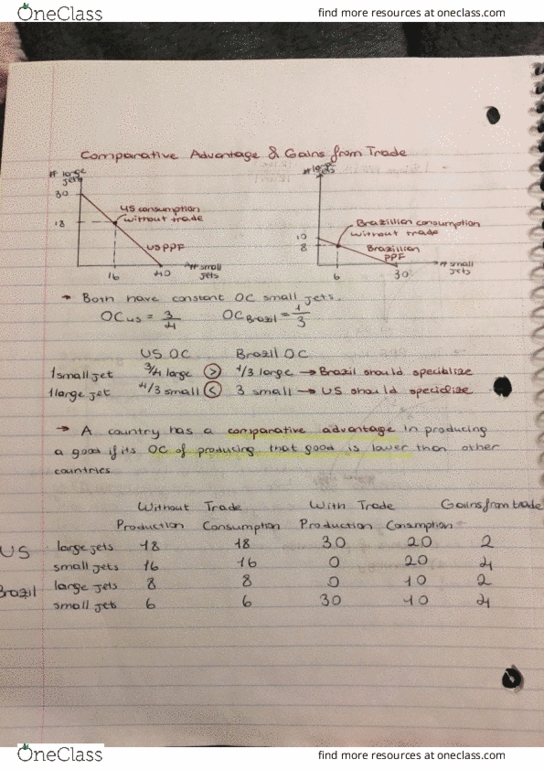 OneClass find more resources at oneclass.com
Comparative Advantage & Gains from Trade
# large
jets
30
18
US consumption
without trade
US PPF
16 40 # small
jets
jets
10
8
Brazillion consumption
without trade
Brazillion
PPF
6 30 # small
jets
→ Both have constant OC small jets.
OC us = 3/4 OC Brazil = 1/3
US OC Brazil OC
1 small jet 3/4 large > 1/3 large → Brazil should specialize
1 large jet 4/3 small < 3 small → US should specialize
→ A country has a comparative advantage in producing
a good if its OC of producing that good is lower than other
countries
Without Trade With Trade Gains from trade
Production Consumption Production Consumption
US large jets 18 18 30 20 2
small jets 16 16 0 20 4
Brazil large jets 8 8 0 10 2
small jets 6 6 30 10 4
OneClass find more resources at oneclass.com